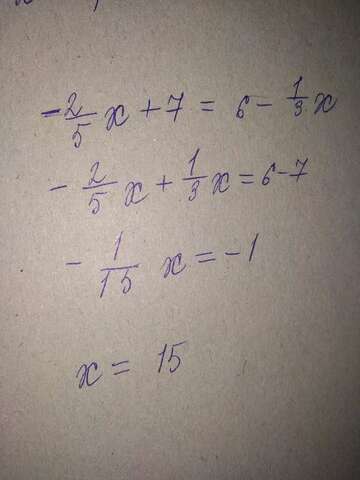 -2/5 x + 7 = 6 - 1/3 x
- 2/5 x + 1/3 x = 6-7
- 1/15 x = -1
x = 15